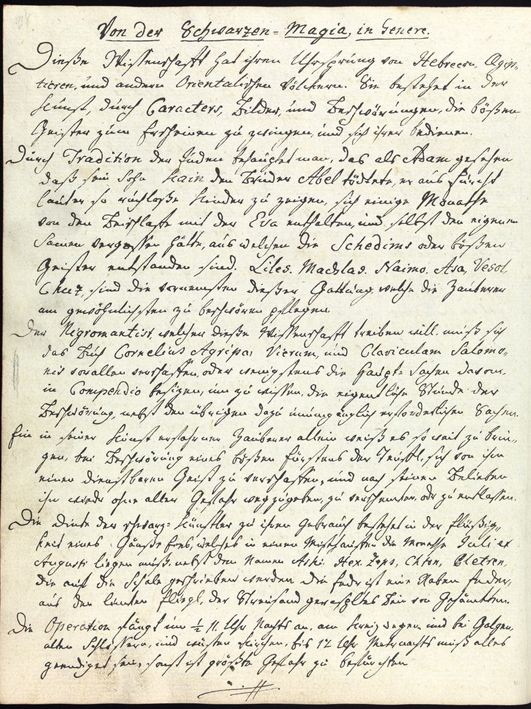 Von der Schwarzen-Magia, in Genere.
Dieße Wissenschafft hat ihren Uhrsprung von Hebreern, Egip-
tieren, und andern Orientalischen Völckern. Sie bestehet in der
Kunst, durch Caracters, Bilder, und Beschwörungen, die bößen
Geister zum Erscheinen zu zwingen, und sich ihrer bedienen.
Durch Tradition der Juden behauptet man, das als Adam gesehen
daß sein Sohn Kain den Bruder Abel tödtete, er aus Furcht
lauter so ruchloße Kinder zu zeigen, sich einige Monathe
von den Beischlaffe mit der Eva enthalten, und selbst den eigenen
Saamen vergossen hätte, aus welchen die Schedims oder bößen
Geister entstanden sind. Lilis. Machlas. Naimo. Asa. Vesol.
Chuz, sind die vornemsten dießer Gattung welche die Zauberer
am gewöhnlichsten zu beschwören pflegen.
Der Nigromantist, welcher dieße Wissenschafft treiben will, muß sich
das Buch Cornelius Agrippa Vierum, und Claviculam Salomo-
nis vor allen verschaffen, oder wenigstens die Haupt Sachen davon
in Compendio besizen, um zu wissen, die eigentliche Stunde der
Beschwörung, nebst den übrigen dazu erforderlichen Sachen.
Ein in seiner Kunst erfahrner Zauberer allein weiß es so weit zu brin-
gen, bei Beschwörung eines bößen Fürstens der Teuffl, sich von ihm
einen dienstbaren Geist zu verschaffen, und nach seinen Belieben
ihn wieder ohne aller Gefahr wegzugeben, zu verschencken, oder zu entlassen.
Die Dinte der schwarz Künstler zu ihren Gebrauch bestehet in der Flüßig-
keit eines in einem Misthauffen die Monathe Juli et
Augusti liegen muß, nebst den Namen
die auf die Schale geschrieben werden. Die Feder ist eine Raben Feder,
aus den lincken Fliegl
Die Operation fängt um ½ 11 Uhr Nachts an, am Kreuzwegen, und bei Galgen,
alten Schlössern, und wüsten Kirchen, bis 12 Uhr Mitternachts muß alles
geendiget sein, sonst ist größte Gefahr zu befürchten